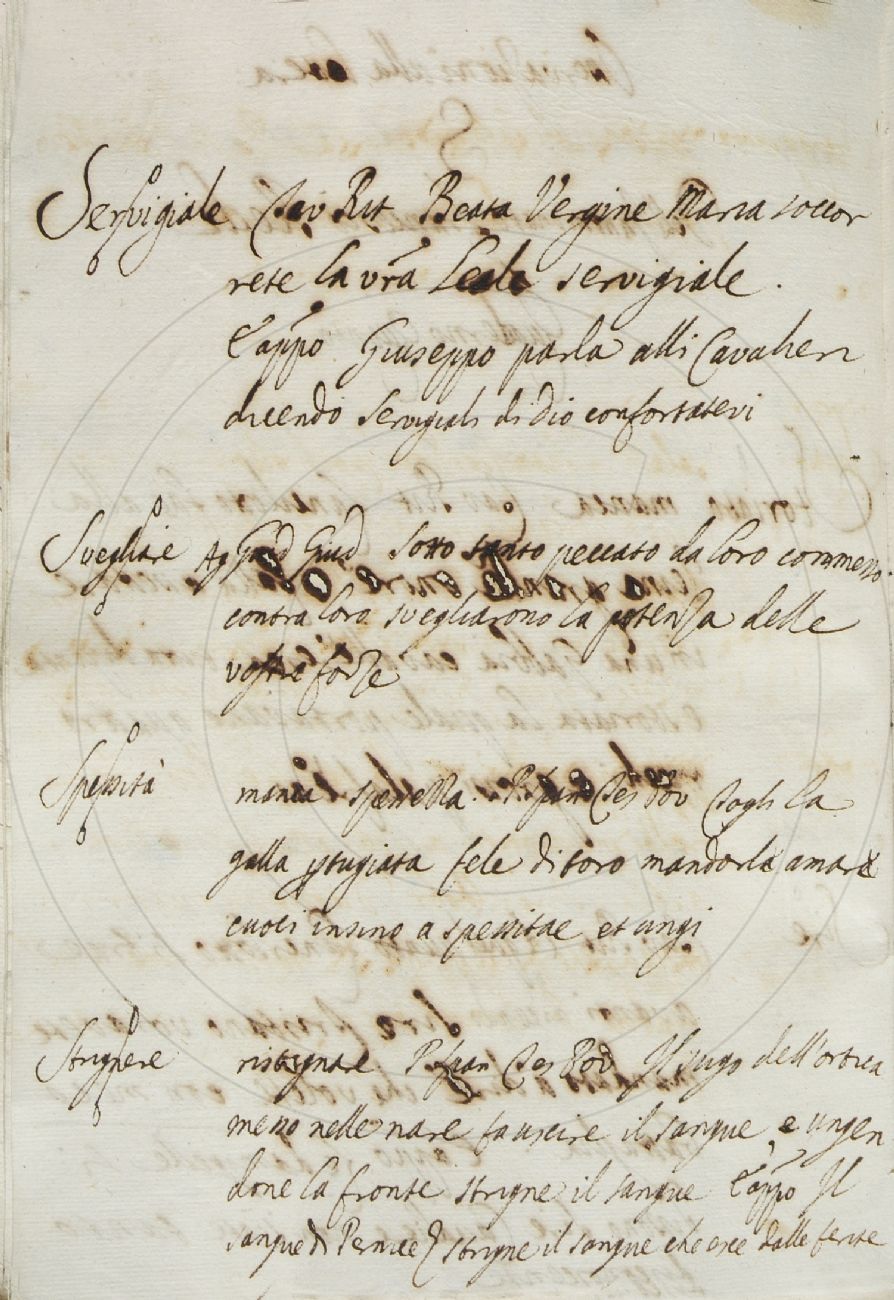 Servigiale Cav Rit Beata Vergine Maria soccor
rete la vrã Leale servigiale.
E app̃o Giuseppo parla alli Cavalieri
dicendo servigiali di Dio confortatevi
Svegliare Guid Giud sotto tanto peccato da loro commesso
contra loro svegliarono la potenza delle
vostre forze
Spessità manca spessezza. Pier span Tes Pov Togli la
galla ptugiata fele di toro mandorla amara
cuoci insino a spessitae et ungi
Strignere ristagnare P span Tes Pov Il sugo dell'ortica
messo nelle nare fa uscire il sangue e ungen
done la fronte strigne il sangue E app̃o Il
sangue di Pernice strigne il sangue che esce dalle ferite